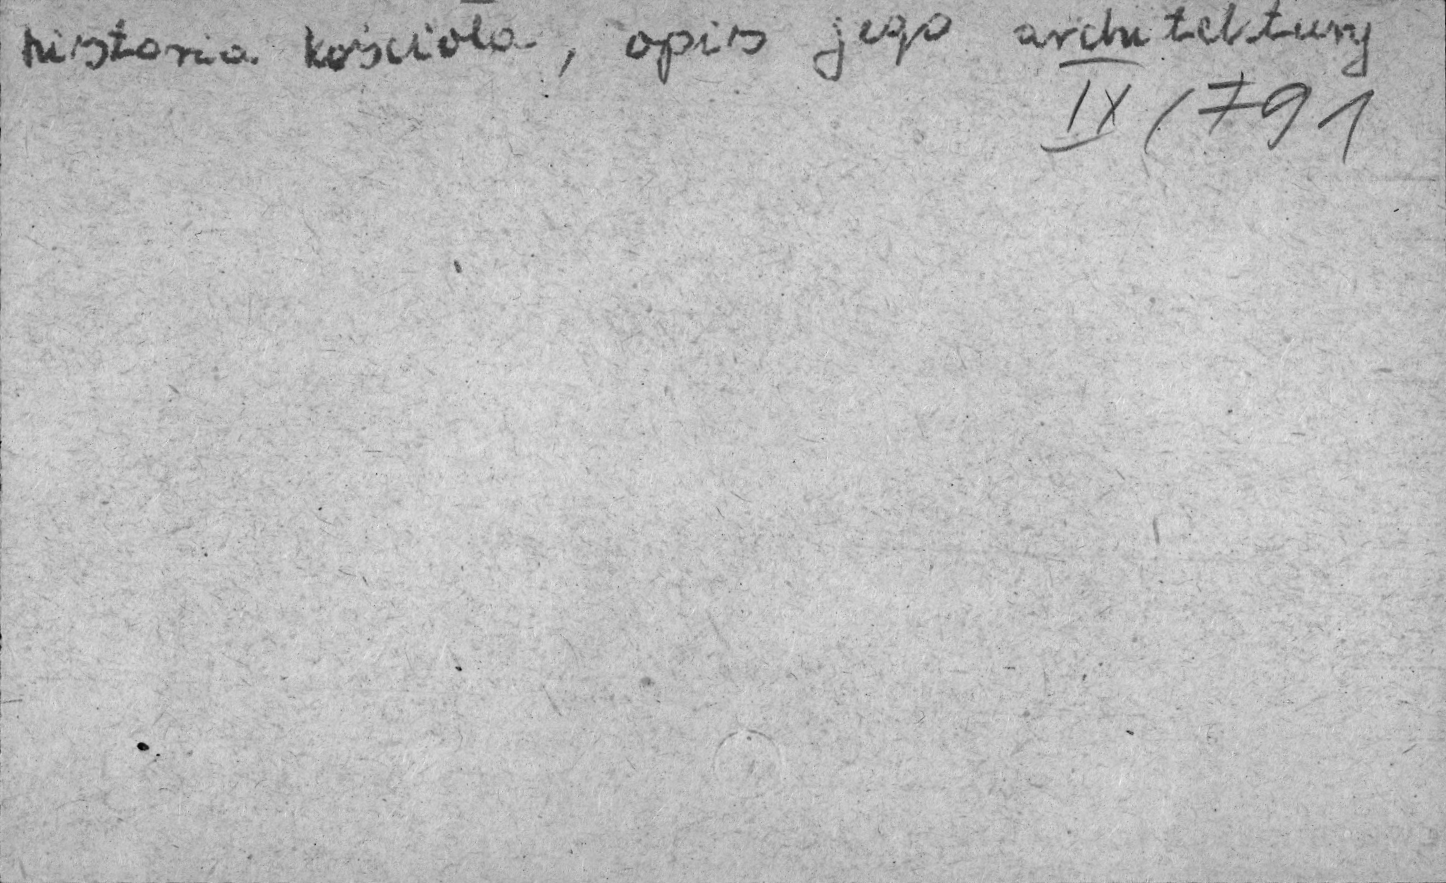 historia kościoła, opis jego architektury
IX/791